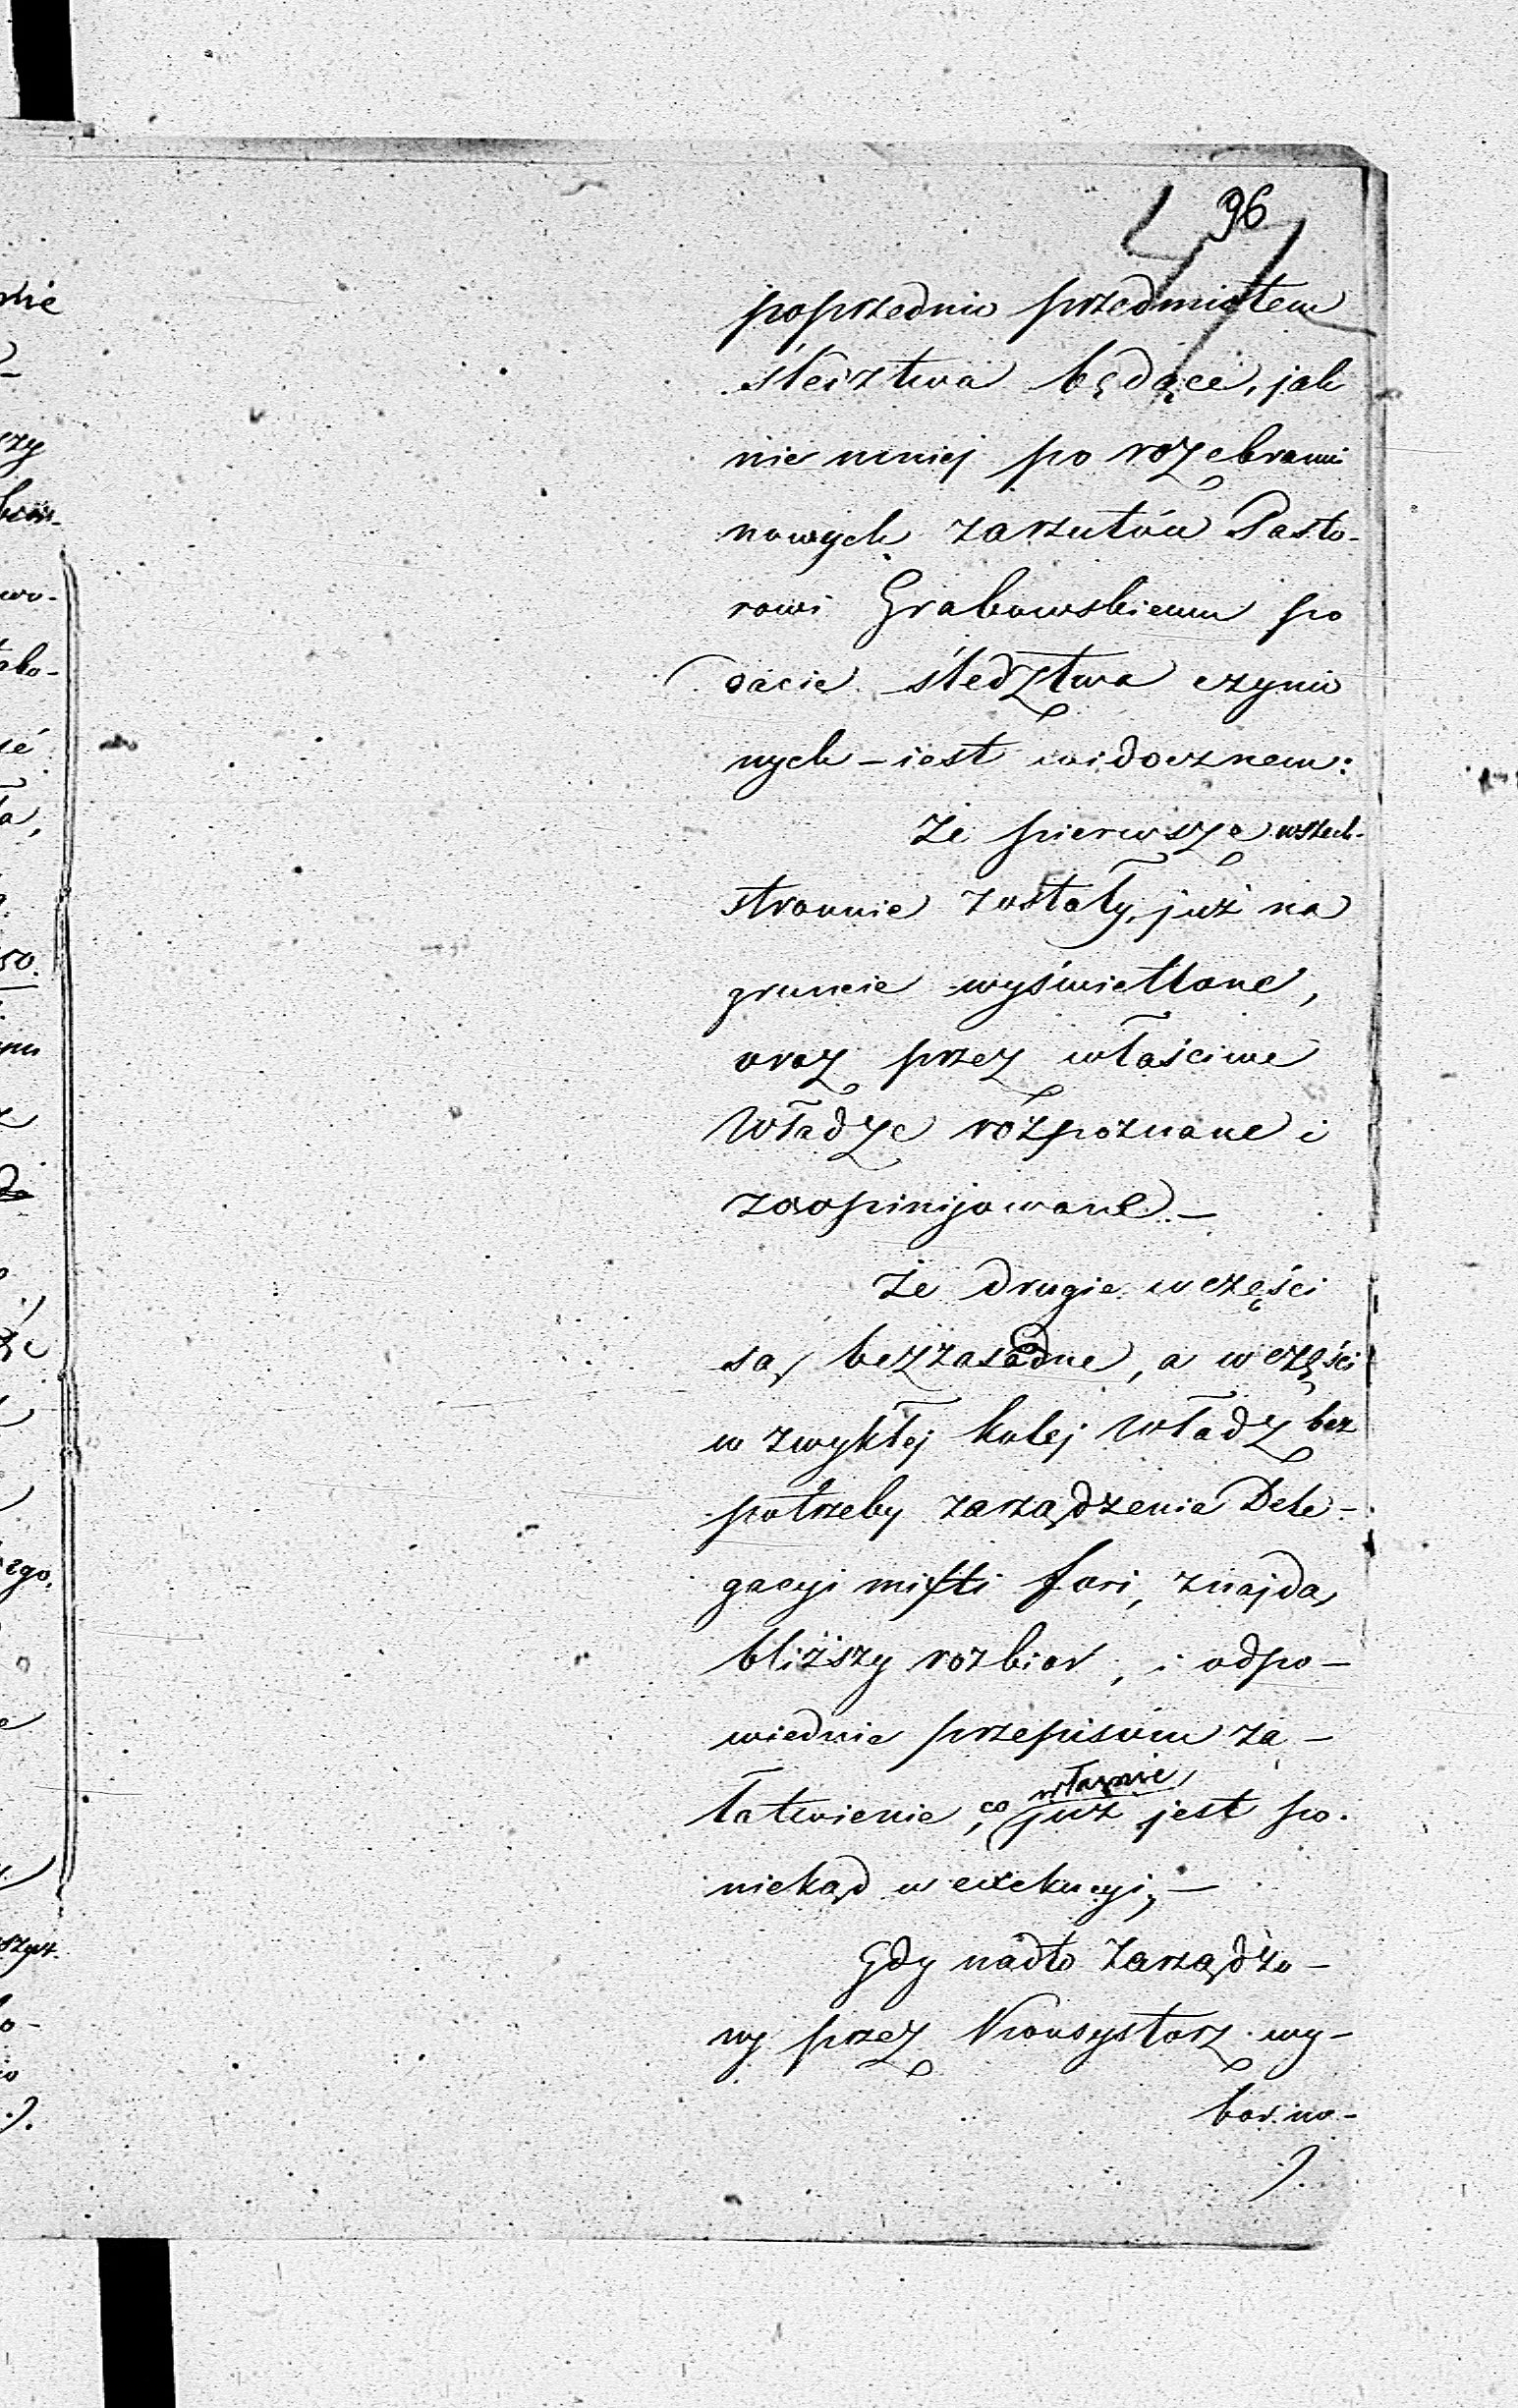 96
poprzednio przedmiotem
śledztwa będące, jak
nie mniej po rozebraniu
nowych zarzutów Pasto-
rowi Grabowskiemu po
dacie śledztwa czynio
nych – iest widocznem:
że pierwsze wszech-
stronnie zostały już na
gruncie wyświetlone,
oraz przez właściwe
Władze rozpoznane i
zaopinijowane –
że drugie w części
są bezzasadne, a w części
w zwykłej kolej Władz bez
potrzeby zarządzenia Dele-
gacyi mixti fori, znajdą
bliższy rozbiór, i odpo-
wiednie przepisom za-
łatwienie, co właśnie
już jest po-
niekąd w exekucyi, –
Gdy nadto zarządzo-
ny przez Konsystorz wy-
bor no-